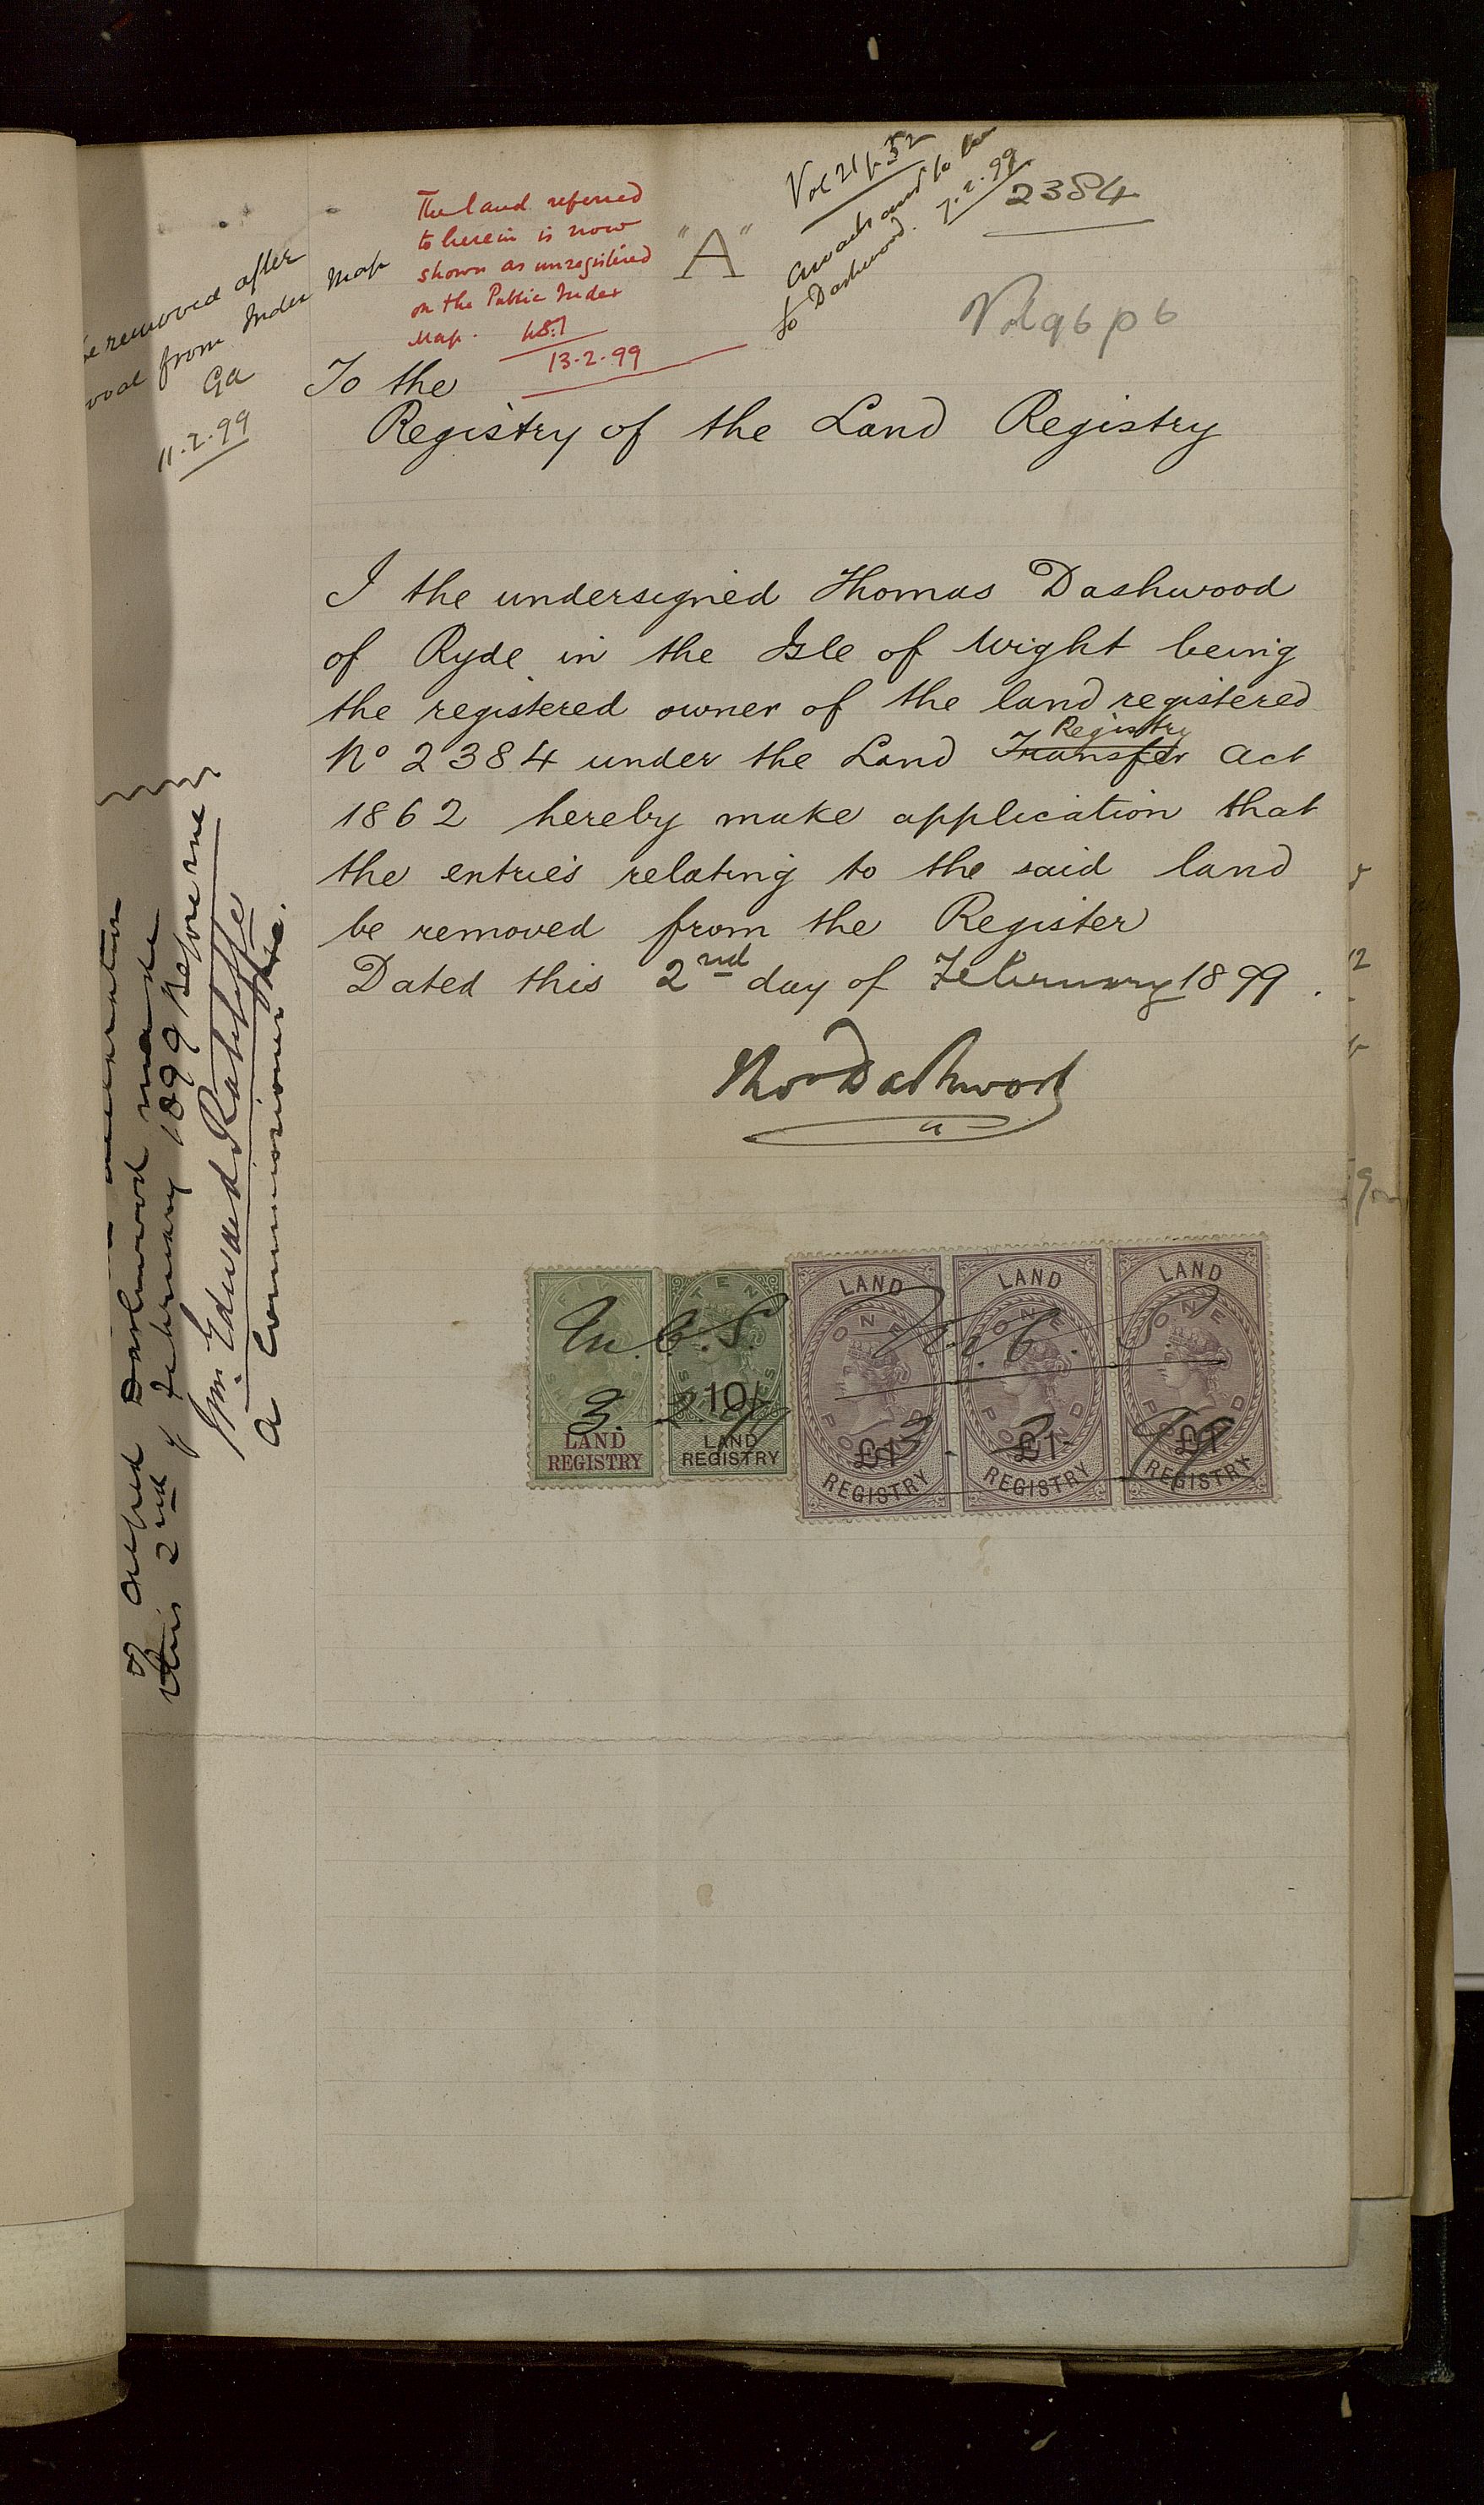 Vol 21 p 52
2384
The land referred
to herein is now
shown as unregistered
on the Public Index
Map.
13.2.99
"A"
to Dashwood. 7.2.99
Vol 96 p 6
be removed after
from Index Map
Ga
11.2.99
To the
Registry of the Land Registry
I the undersigned Thomas Dashwood
of Ryde in the Isle of Wight being
the registered owner of the land registered
Registry
No 2384 under the Land Transfer Act
1862 hereby make application that
the entries relating to the said land
be removed from the Register
Dated this 2nd day of February 1899.
Thos Dashwood
declaration
of Alfred Dashwood made
this 2nd of February 1899 Before me
Wm. Edward Ratcliffe
a Commissioner &c.
FIVE SHILLINGS
LAND
REGISTRY
TEN SHILLINGS
10/-
LAND
REGISTRY
LAND
ONE POUND
£1-
REGISTRY
LAND
ONE POUND
£1-
REGISTRY
LAND
ONE POUND
£1-
REGISTRY
M.C.S.
3.2.99
M.C.S.
3-2-99